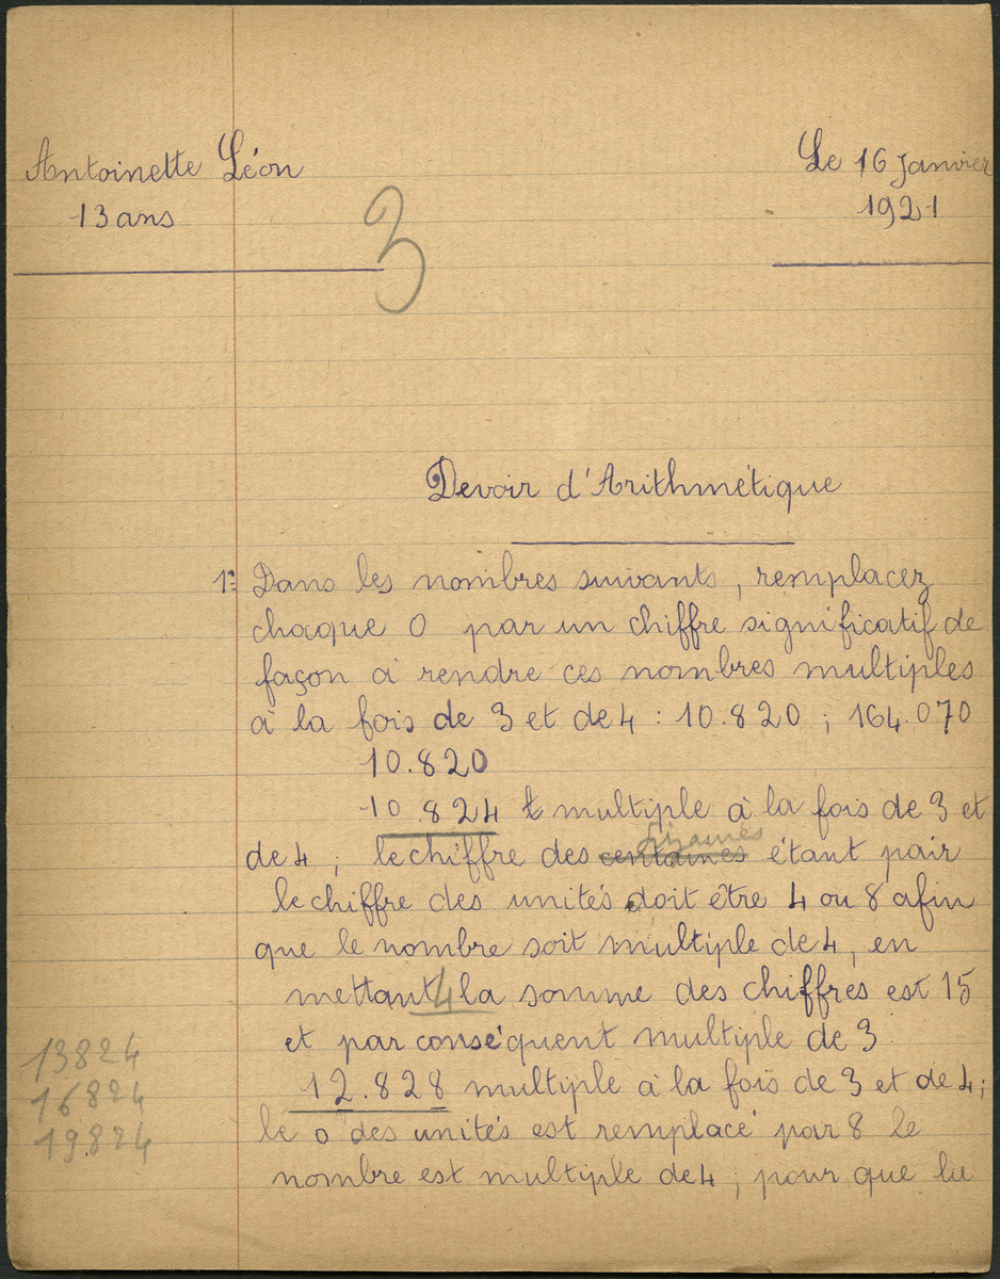 Antoinette Léon
13 ans
Le 16 Janvier
1921
3
Devoir d'Arithmétique
1º Dans les nombres suivants, remplacez
chaque 0 par un chiffre significatif de
façon à rendre ces nombres multiples
à la fois de 3 et de 4 : 10.820 ; 164.070
10.820
10.824 multiple à la fois de 3 et
de 4 ; le chiffre des centaines dizaines étant pair
le chiffre des unités doit être 4 ou 8 afin
que le nombre soit multiple de 4, en
mettant 4 la somme des chiffres est 15
et par conséquent multiple de 3
13824
16824
19.824
12.828 multiple à la fois de 3 et de 4 ;
le 0 des unités est remplacé par 8 le
nombre est multiple de 4, pour que la